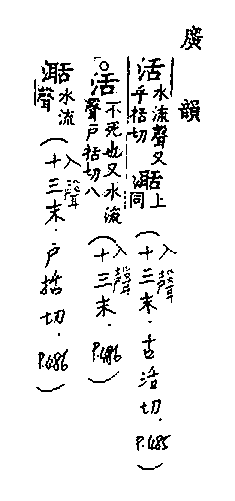 廣韻
活 水流聲又乎括切 𣴠 上同
(入聲 十三末．古活切．P.485)
○活 不死也又水流聲戶括切八
(入聲 十三末．P.486)
𣴠 水流聲
(入聲 十三末．戶括切．P.486)